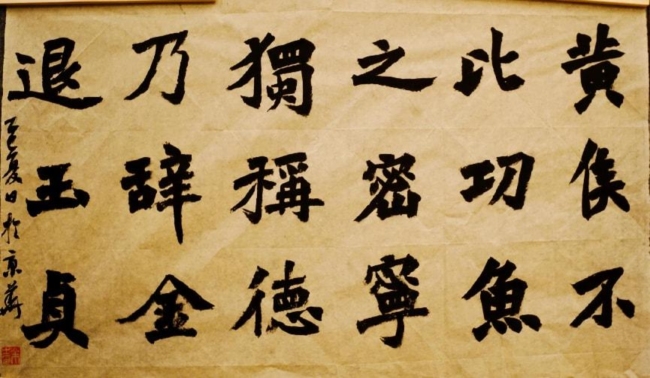 黄侯不
比功魚
之密寧
獨稱德
乃辞金
退玉貞
乙巳夏日於京華